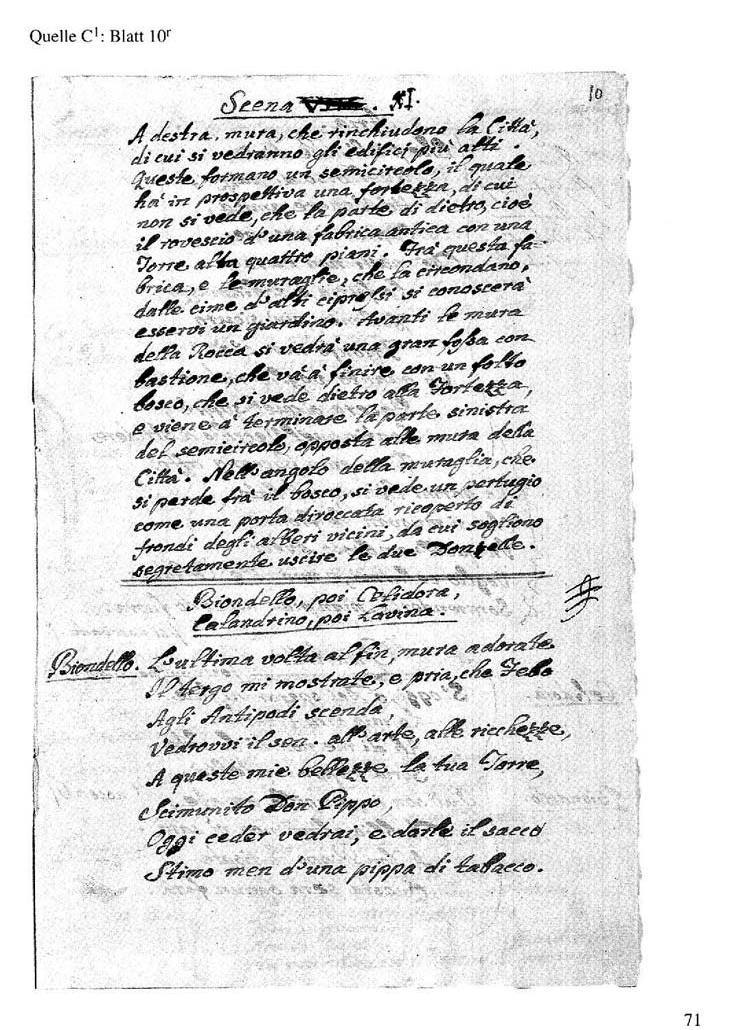 Quelle C¹: Blatt 10ʳ
10
Scena XI.
A destra, mura, che rinchiudono la Città,
di cui si vedranno gli edifici più alti.
Queste formano un semicircolo, il quale
hà in prospettiva una fortezza, di cui
non si vede, che la parte di dietro, cioè
il rovescio d'una fabrica antica con una
Torre alta quattro piani. Frà questa fa-
brica, e le muraglie, che la circondano,
dalle cime d'alti cipressi si conoscerà
esservi un giardino. Avanti le mura
della Rocca si vedrà una gran fossa con
bastione, che và à finire con un folto
bosco, che si vede dietro alla Fortezza,
e viene à terminare la parte sinistra
del semicircolo, opposta alle mura della
Città. Nell'angolo della muraglia, che
si perde frà il bosco, si vede un pertugio
come una porta diroccata ricoperto di
frondi degli alberi vicini, da cui sogliono
segretamente uscire le due Donzelle.
Biondello, poi Celidora,
Calandrino, poi Lavina.
Biondello. L'ultima volta al fin, mura adorate
Il tergo mi mostrate, e pria, che Febo
Agli Antipodi scenda,
Vedrovvi il sen. all'arte, alle ricchezze,
A queste mie bellezze la tua Torre,
Scimunito Don Pippo,
Oggi ceder vedrai, e darle il sacco
Stimo men d'una pippa di tabacco.
71